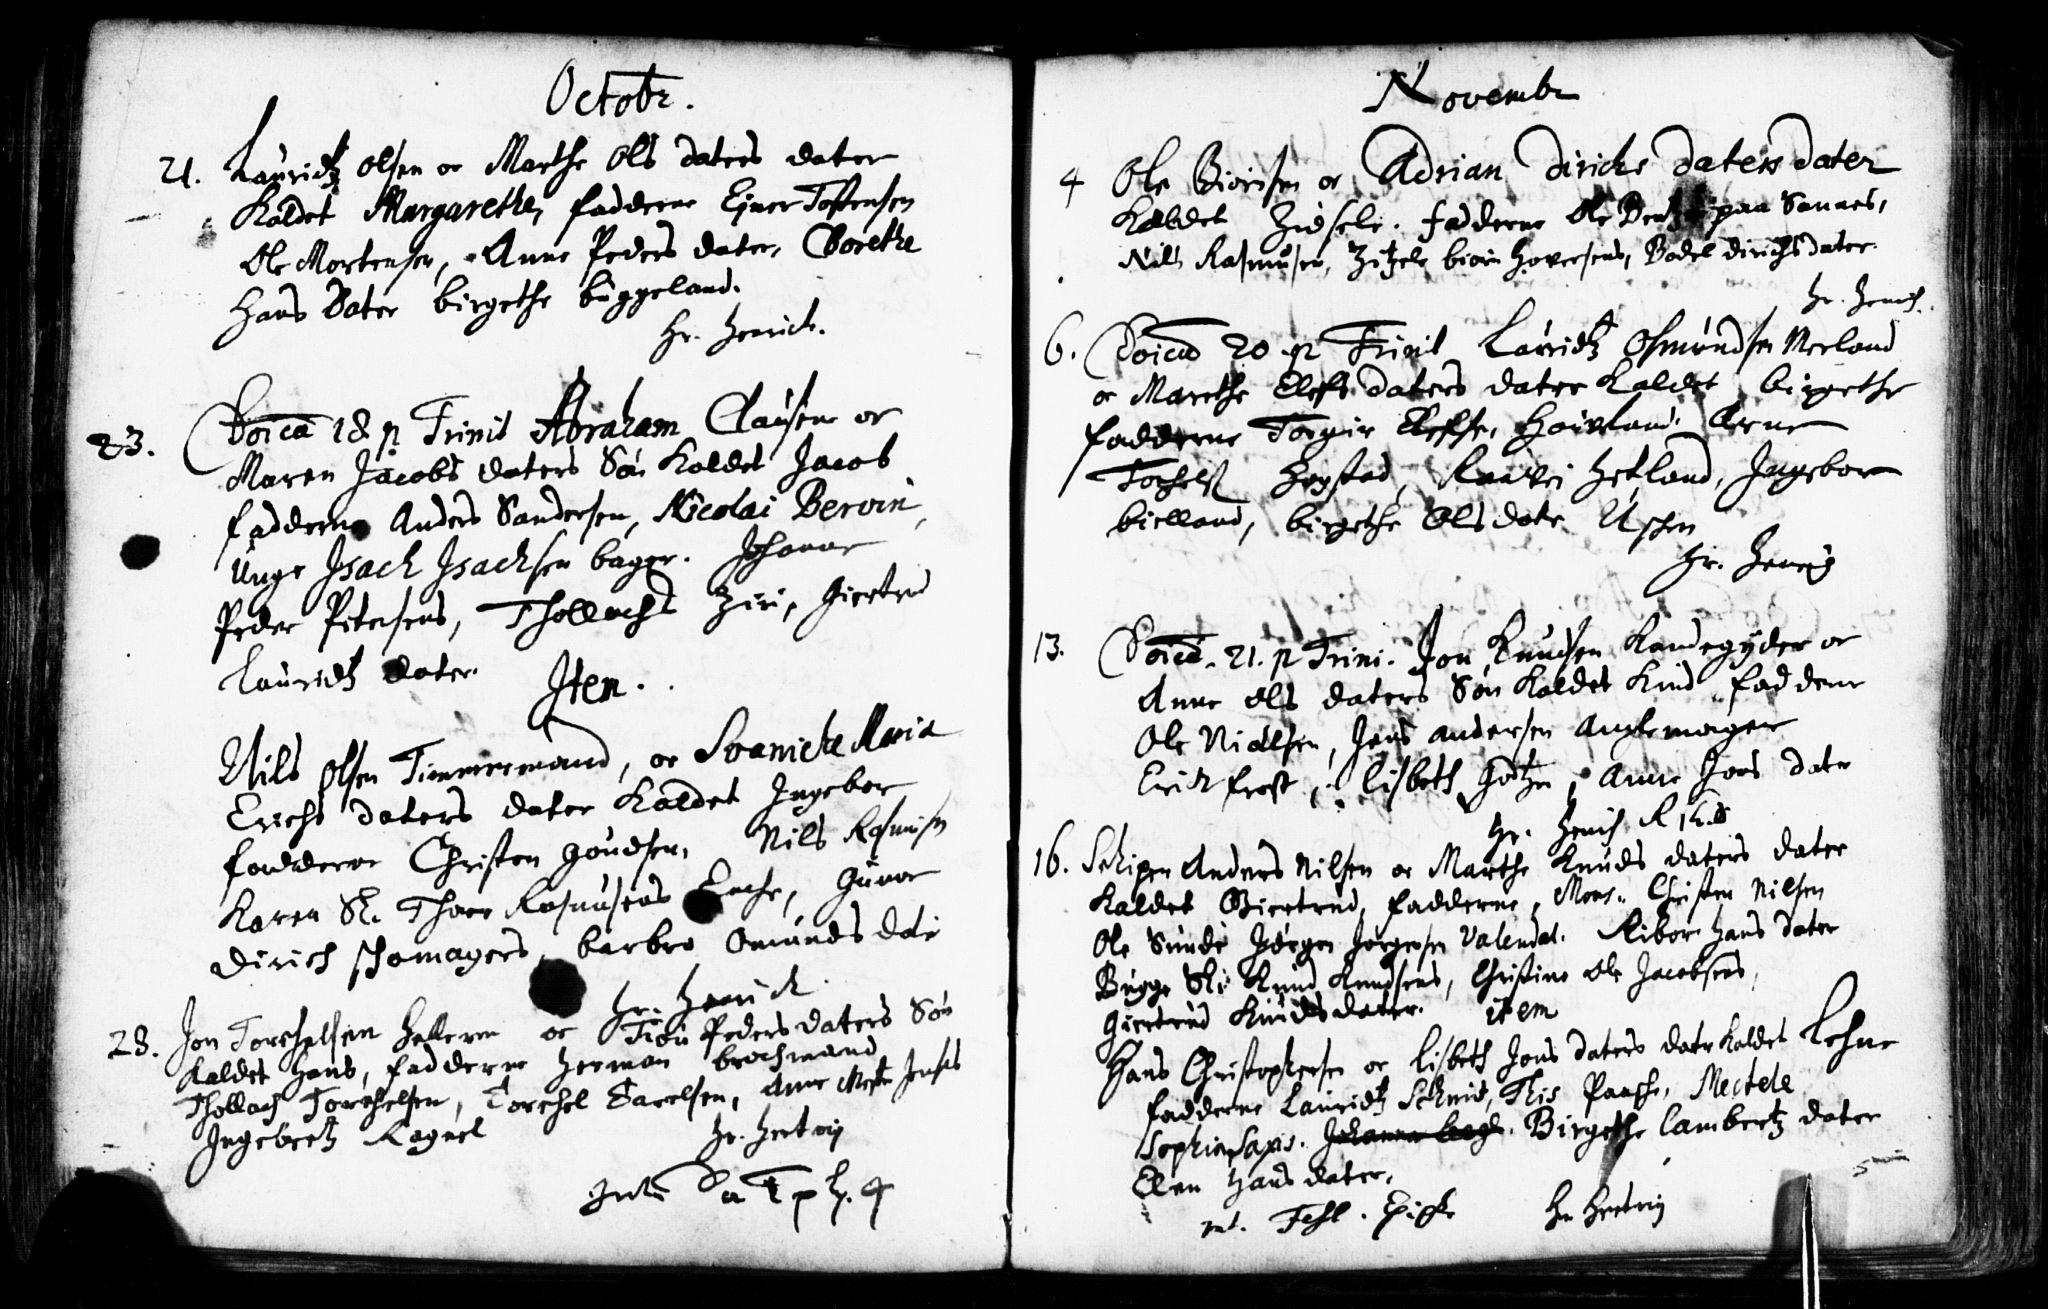 Octobr.
21. Lauridtz Olsen oc Marthe Ols daters dater
Kaldet Margarethe, fadderne Ejner Tostensen
Ole Mortensen, Anne Peders dater, Dorethe
Hans Dater birgethe büggeland.
Hr. Henrich.
23. Doica 18 p Trinit Abraham Clausens oc
Maren Jacobs daters Søn Kaldet Jacob
fadderne Anders Sandersen, Nicolai Bervin,
Unge Isach Isachsen bager. Johanne
Peder Pitersens, Thollachs Ziri, Giertrud
Lauridtz dater.
Item.
Nils Olsen Timmermand, oc Svaniche Maria
Erichs daters dater Kaldet Ingebor
fadderne Christen goudsen, Nils Rasmusen
Karen Sl. Thore Rasmusens Enche, Gunor
Dirich schomagers, barbro Omunds dater
Hr. Henrich
28. Jon Torchelsen Helleren oc Siøn Peders daters Søn
Kaldet Hans, fadderne Herman brochmand
Thollach Torchelsen, Torchel Sacelsen, Anne Jenses
Ingebretz Ragnel
Hr. Hertvig
Novembr
4 Ole Biørnsen oc Adrian Dirichs Daters Dater
Kaldet Zidsele. fadderne Ole paa Sannes,
Nils Rasmusen, Zitzele biørn Hoversens, Bodel dirichs dater.
Hr. Henrich.
6. Doica 20 p Trinit Lauridtz Osmundsen Merland
oc Marethe Elefs daters dater Kaldet birgethe
fadderne Torgir Elefsen Høiland. Arne
Torchels Hogstad, Raavei Hetland, Ingebor
bielland, birgethe Ols dater Uschen
Hr. Henrig
13. Doica. 21. p Trini. Jon Knudsen Kandegyder oc
Anne Ols daters Søn Kaldet Knud fadderne
Ole Nielsen, Jens Andersen Anckermager
Erich frost, Lisbeth Götzen, Anne Jons dater
Hr. Henrich
16. Schipper Anders Nilsen oc Marthe Knuds daters dater
Kaldet Giertrud, fadderne, Mons. Christen Nilsen
Ole Sunde Jørgen Jørgensen Valendal. Ribor Hans dater
Bugge Sl. Knud Knudsens, Christine Ole Jacobsens,
Giertrud Knuds dater. item
Hans Christophersen oc Lisbeth Jons daters dater Kaldet Lehne
fadderne Lauridtz Schmid, This Paasche, Mectele
Sophia Saxis. Birgethe Lambertz dater
Elen Hans dater.
Hr Hertvig